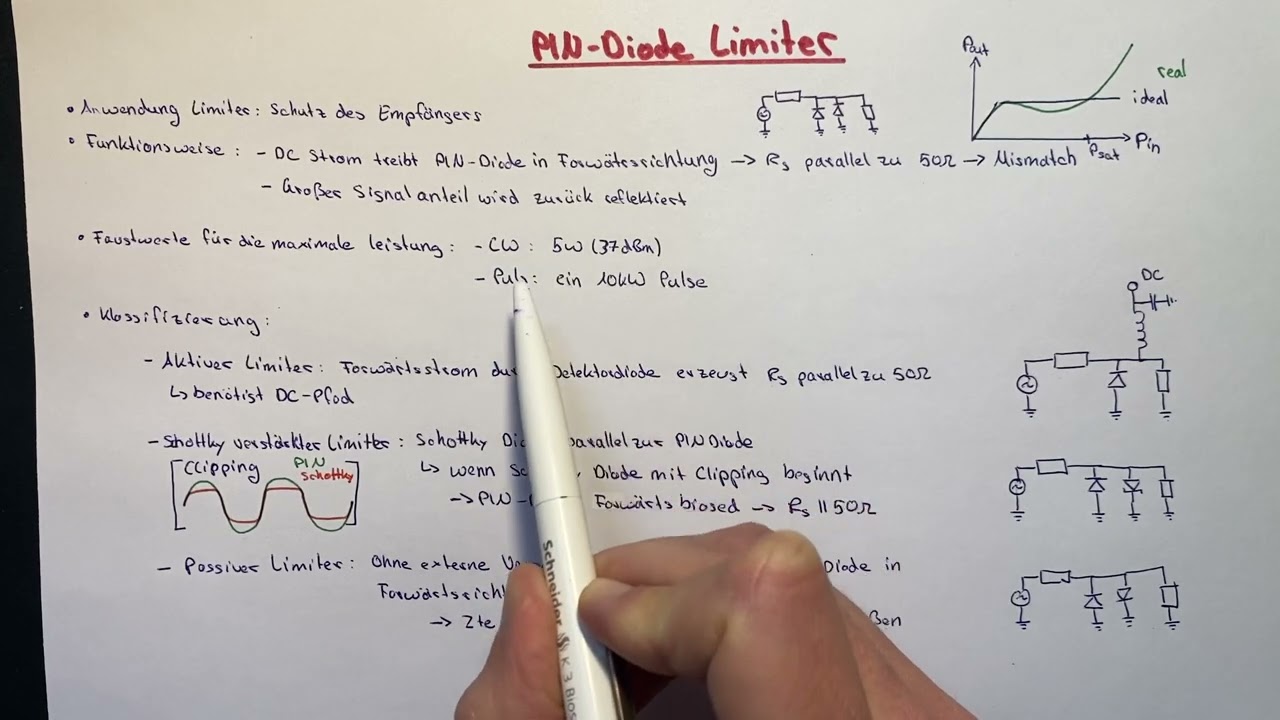 PIN-Diode Limiter
• Anwendung Limiter: Schutz des Empfängers
• Funktionsweise: - DC Strom treibt PIN-Diode in Forwärtsrichtung → Rs parallel zu 50Ω → Mismatch
- Großer Signalanteil wird zurück reflektiert
Pout
real
ideal
Psat
Pin
• Faustwerte für die maximale leistung: - CW: 5W (37dBm)
- Puls: ein 10kW Pulse
• Klassifizierung:
- Aktiver Limiter: Forwärtsstrom Detektordiode erzeugt Rs parallel zu 50Ω
↳ benötigt DC-Pfad
DC
- Shottky verstärkter Limiter: Schottky parallel zur PIN Diode
Clipping
PIN
Schottky
↳ wenn Diode mit Clipping beginnt
→ PIN- Forwärts biased → Rs || 50Ω
- Passiver Limiter: Ohne externe Diode in
→ 2te
Schneider K3 Bios